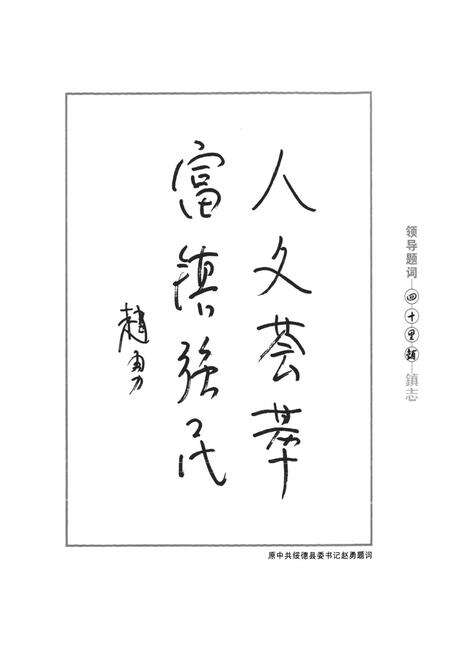 人文荟萃
富镇强民
趙勇
领导题词
四十里铺
鎮志
原中共绥德县委书记赵勇题词